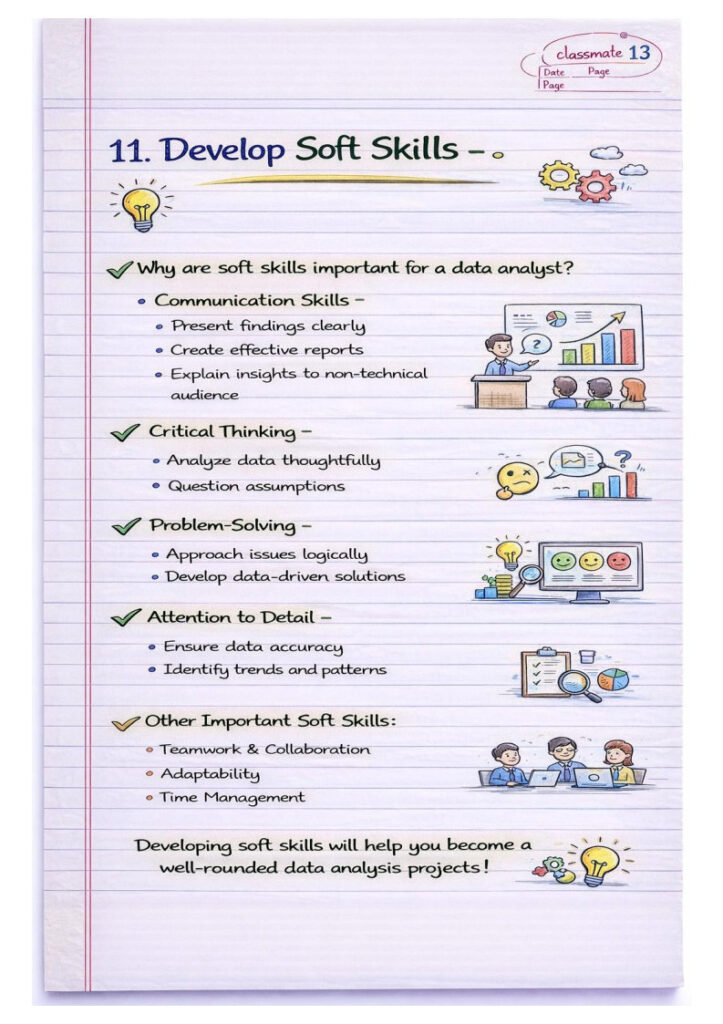 classmate 13
Date Page
Page
11. Develop Soft Skills –
Why are soft skills important for a data analyst?
• Communication Skills –
• Present findings clearly
• Create effective reports
• Explain insights to non-technical
audience
?
Critical Thinking –
• Analyze data thoughtfully
• Question assumptions
?
Problem-Solving –
• Approach issues logically
• Develop data-driven solutions
Attention to Detail –
• Ensure data accuracy
• Identify trends and patterns
Other Important Soft Skills:
• Teamwork & Collaboration
• Adaptability
• Time Management
Developing soft skills will help you become a
well-rounded data analysis projects!